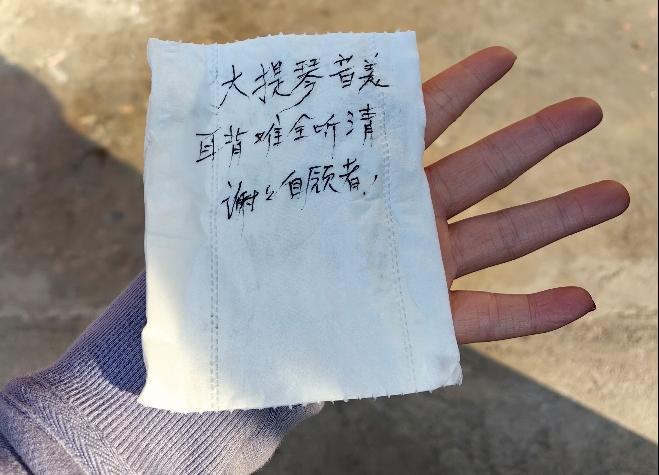 大提琴音美
耳背难全听清
谢々自颀者!